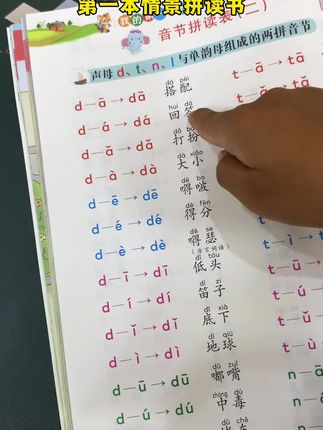 第一本情景拼读书
我的
音节拼读表(二)
声母 d、t、n、l 与单韵母组成的两拼音节
dā pèi
d—ā → dā 搭配 t—ā → tā
huí dá
d—á → dá 回答
d—ǎ → dǎ 打扮
dà xiǎo
d—à → dà 大小
dē bo
d—ē → dē 嘚啵
dé fēn
d—é → dé 得分
d—è → dè 嘚瑟 t—ì → t
(方言词语)
dī tóu
d—ī → dī 低头 t—ū →
dí zi
d—í → dí 笛子 t—ú →
dǐ xià
d—ǐ → dǐ 底下 t—ǔ →
dì qiú
d—ì → dì 地球 t—ù →
dū zuǐ
d—ū → dū 嘟嘴 n—ā →
zhòng dú
d—ú → dú 中毒 n—á →